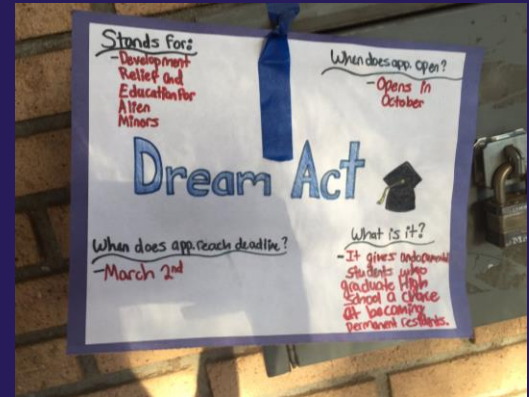 Stands For:
-Development
Relief and
Education For
Alien
Minors
When does app. open?
-Opens in
October
Dream Act
When does app. reach deadline?
-March 2nd
What is it?
-It gives undocumented
students who
graduate High
School a chance
at becoming
permanent residents.